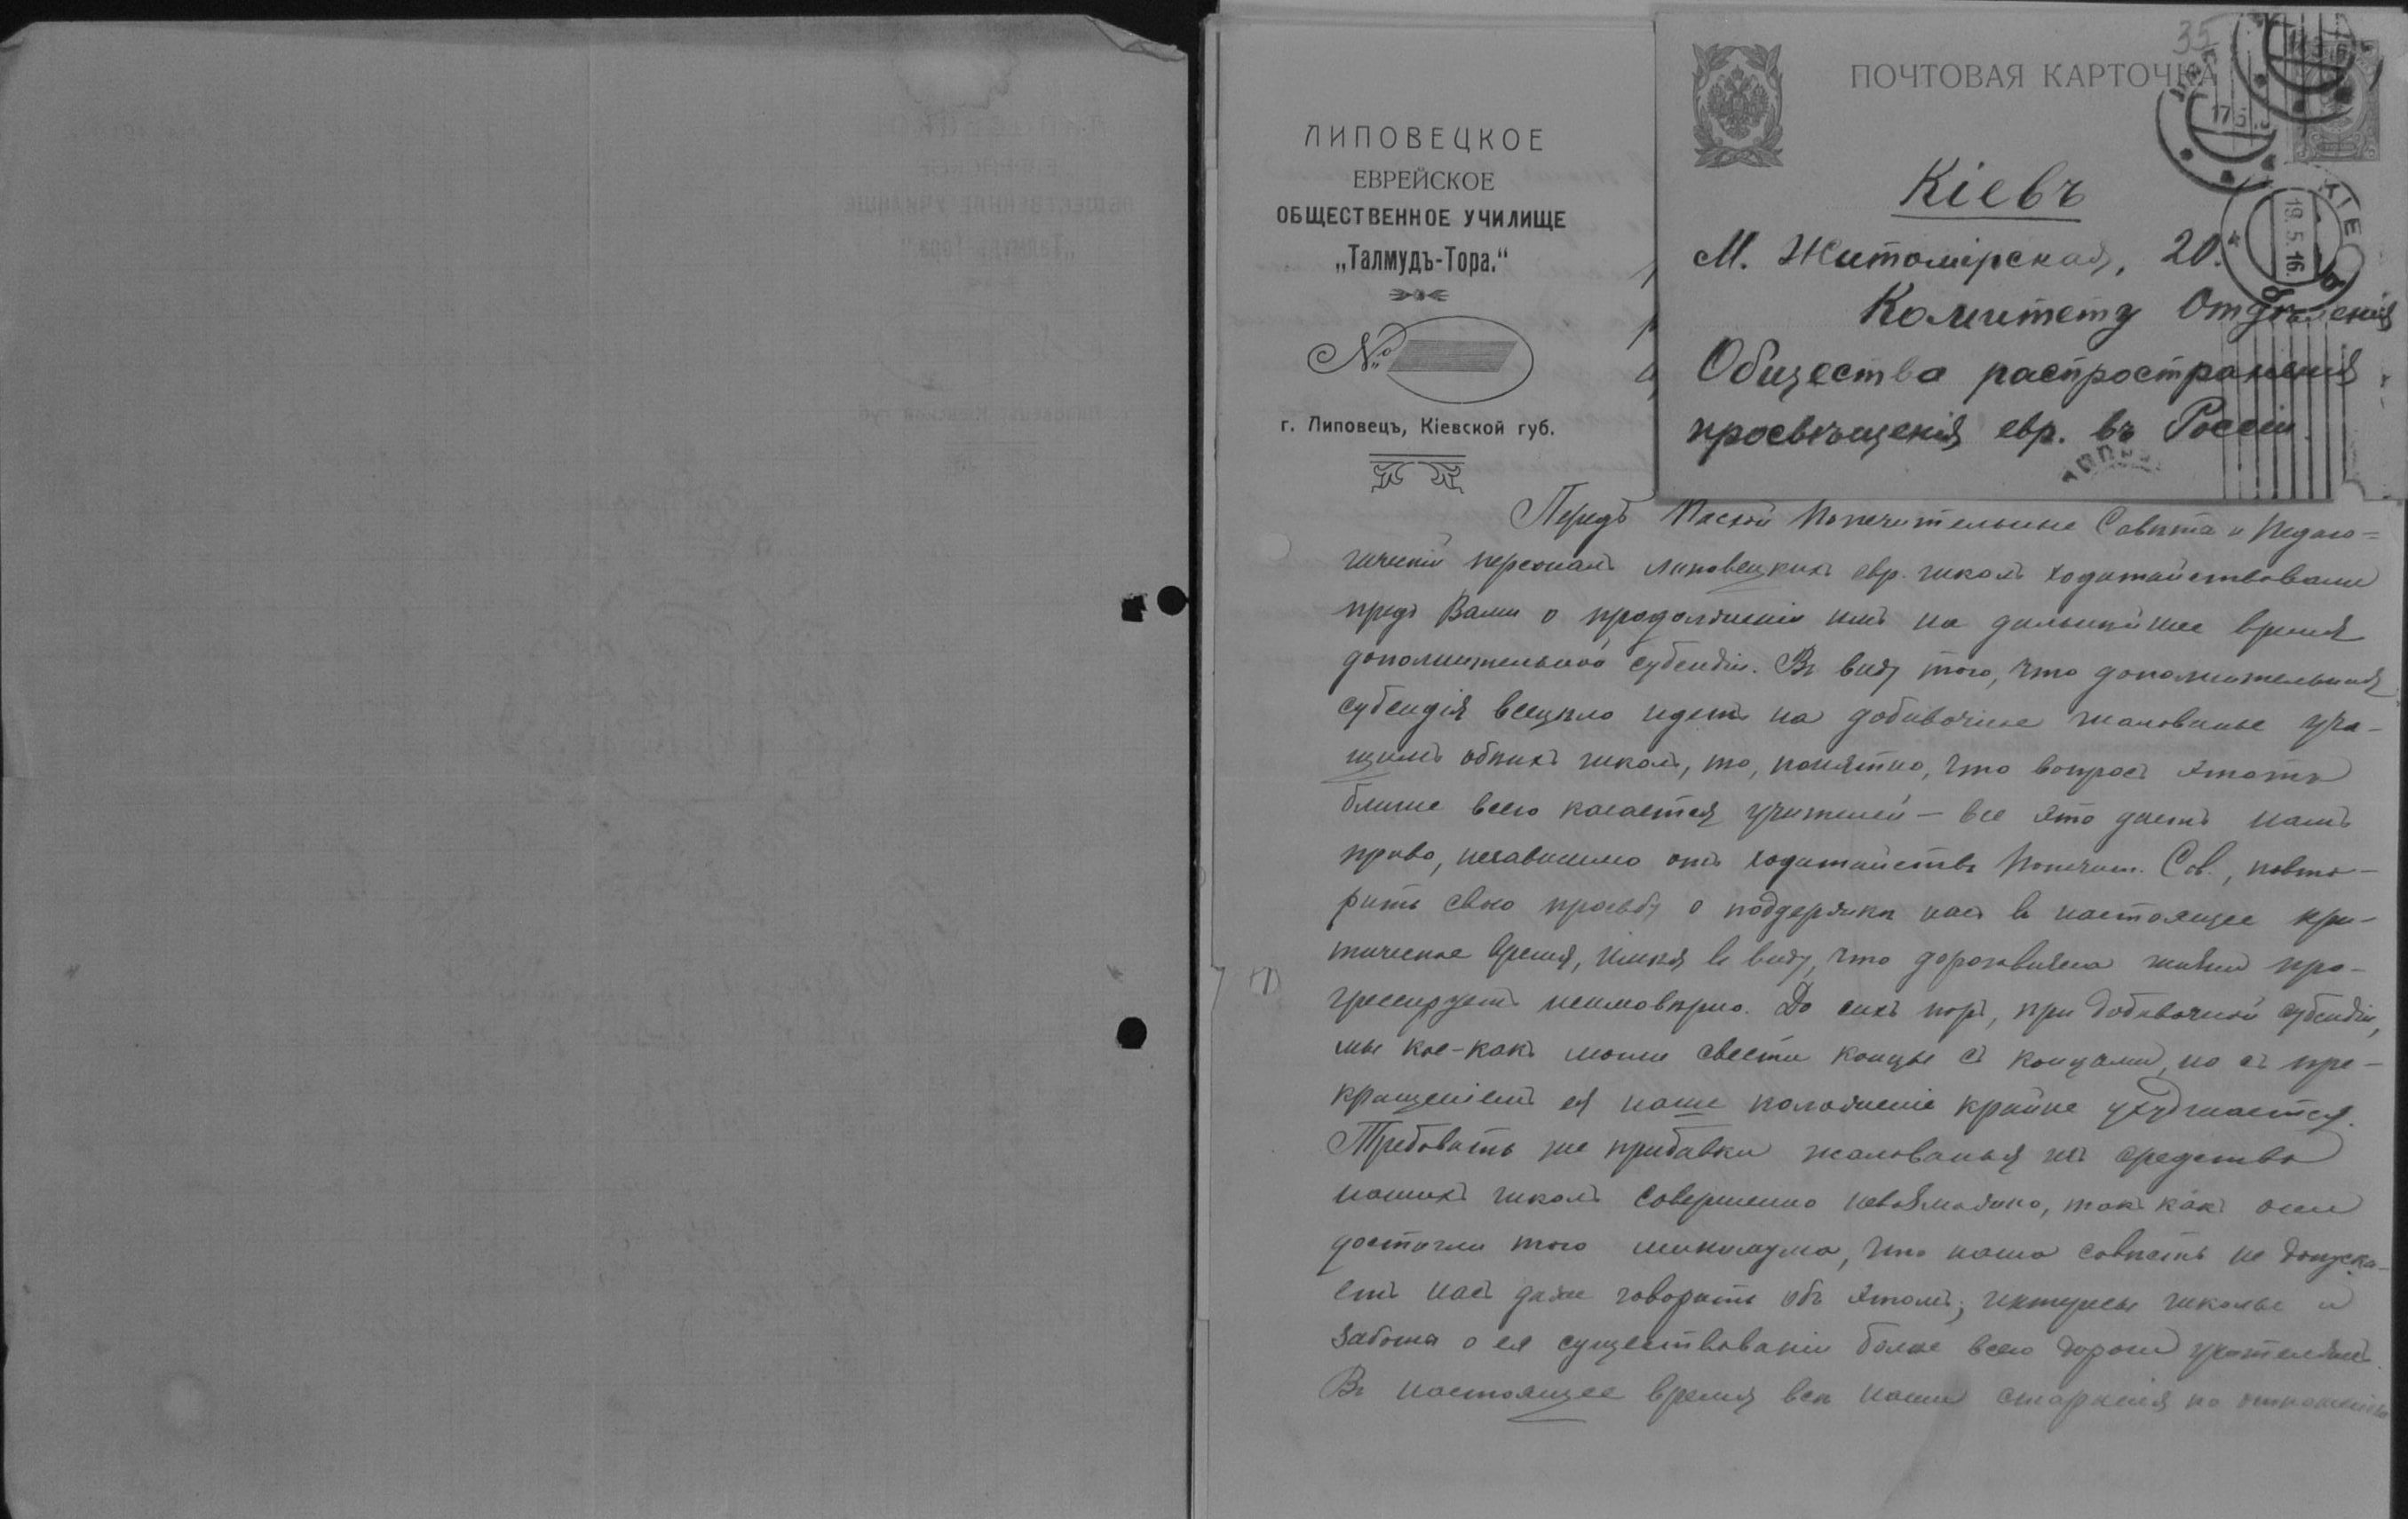 ЛИПОВЕЦКОЕ
ЕВРЕЙСКОЕ
ОБЩЕСТВЕННОЕ УЧИЛИЩЕ
„Талмудъ-Тора."
№
г. Липовецъ, Кіевской губ.
35
ПОЧТОВАЯ КАРТОЧКА
Кіевъ
М. Житомірская, 20.
Комитету Отдѣленія
Общества распространенія
просвѣщенія евр. въ Россіи
19.5.16.
Передъ Пасхой Попечительные Совѣты и Педаго=
гическій персоналъ Липовецкихъ евр. школъ ходатайствовали
предъ Вами о продолженіи имъ на дальнѣйшее время
дополнительной субсидіи. Въ виду того, что дополнительная
субсидія всецѣло идетъ на добавочное жалованье уча-
щимъ обѣихъ школъ, то, понятно, что вопросъ этотъ
ближе всего касается учителей – все это даетъ намъ
право, независимо отъ ходатайствъ Попечит. Сов., повто-
рить свою просьбу о поддержкѣ насъ въ настоящее кри-
тическое время, имѣя въ виду, что дороговизна жизни про-
грессируетъ неимовѣрно. До сихъ поръ, при добавочной субсидіи,
мы кое-какъ могли свести концы съ концами, но съ пре-
кращеніемъ ея наше положеніе крайне ухудшается.
Требовать же прибавки жалованья изъ средствъ
нашихъ школъ совершенно невозможно, такъ какъ они
достигли того минимума, что наша совѣсть не допуска-
етъ насъ даже говорить объ этомъ; интересы школы и
забота о ея существованіи болѣе всего дороги учителямъ.
Въ настоящее время всѣ наши старанія по отношенію